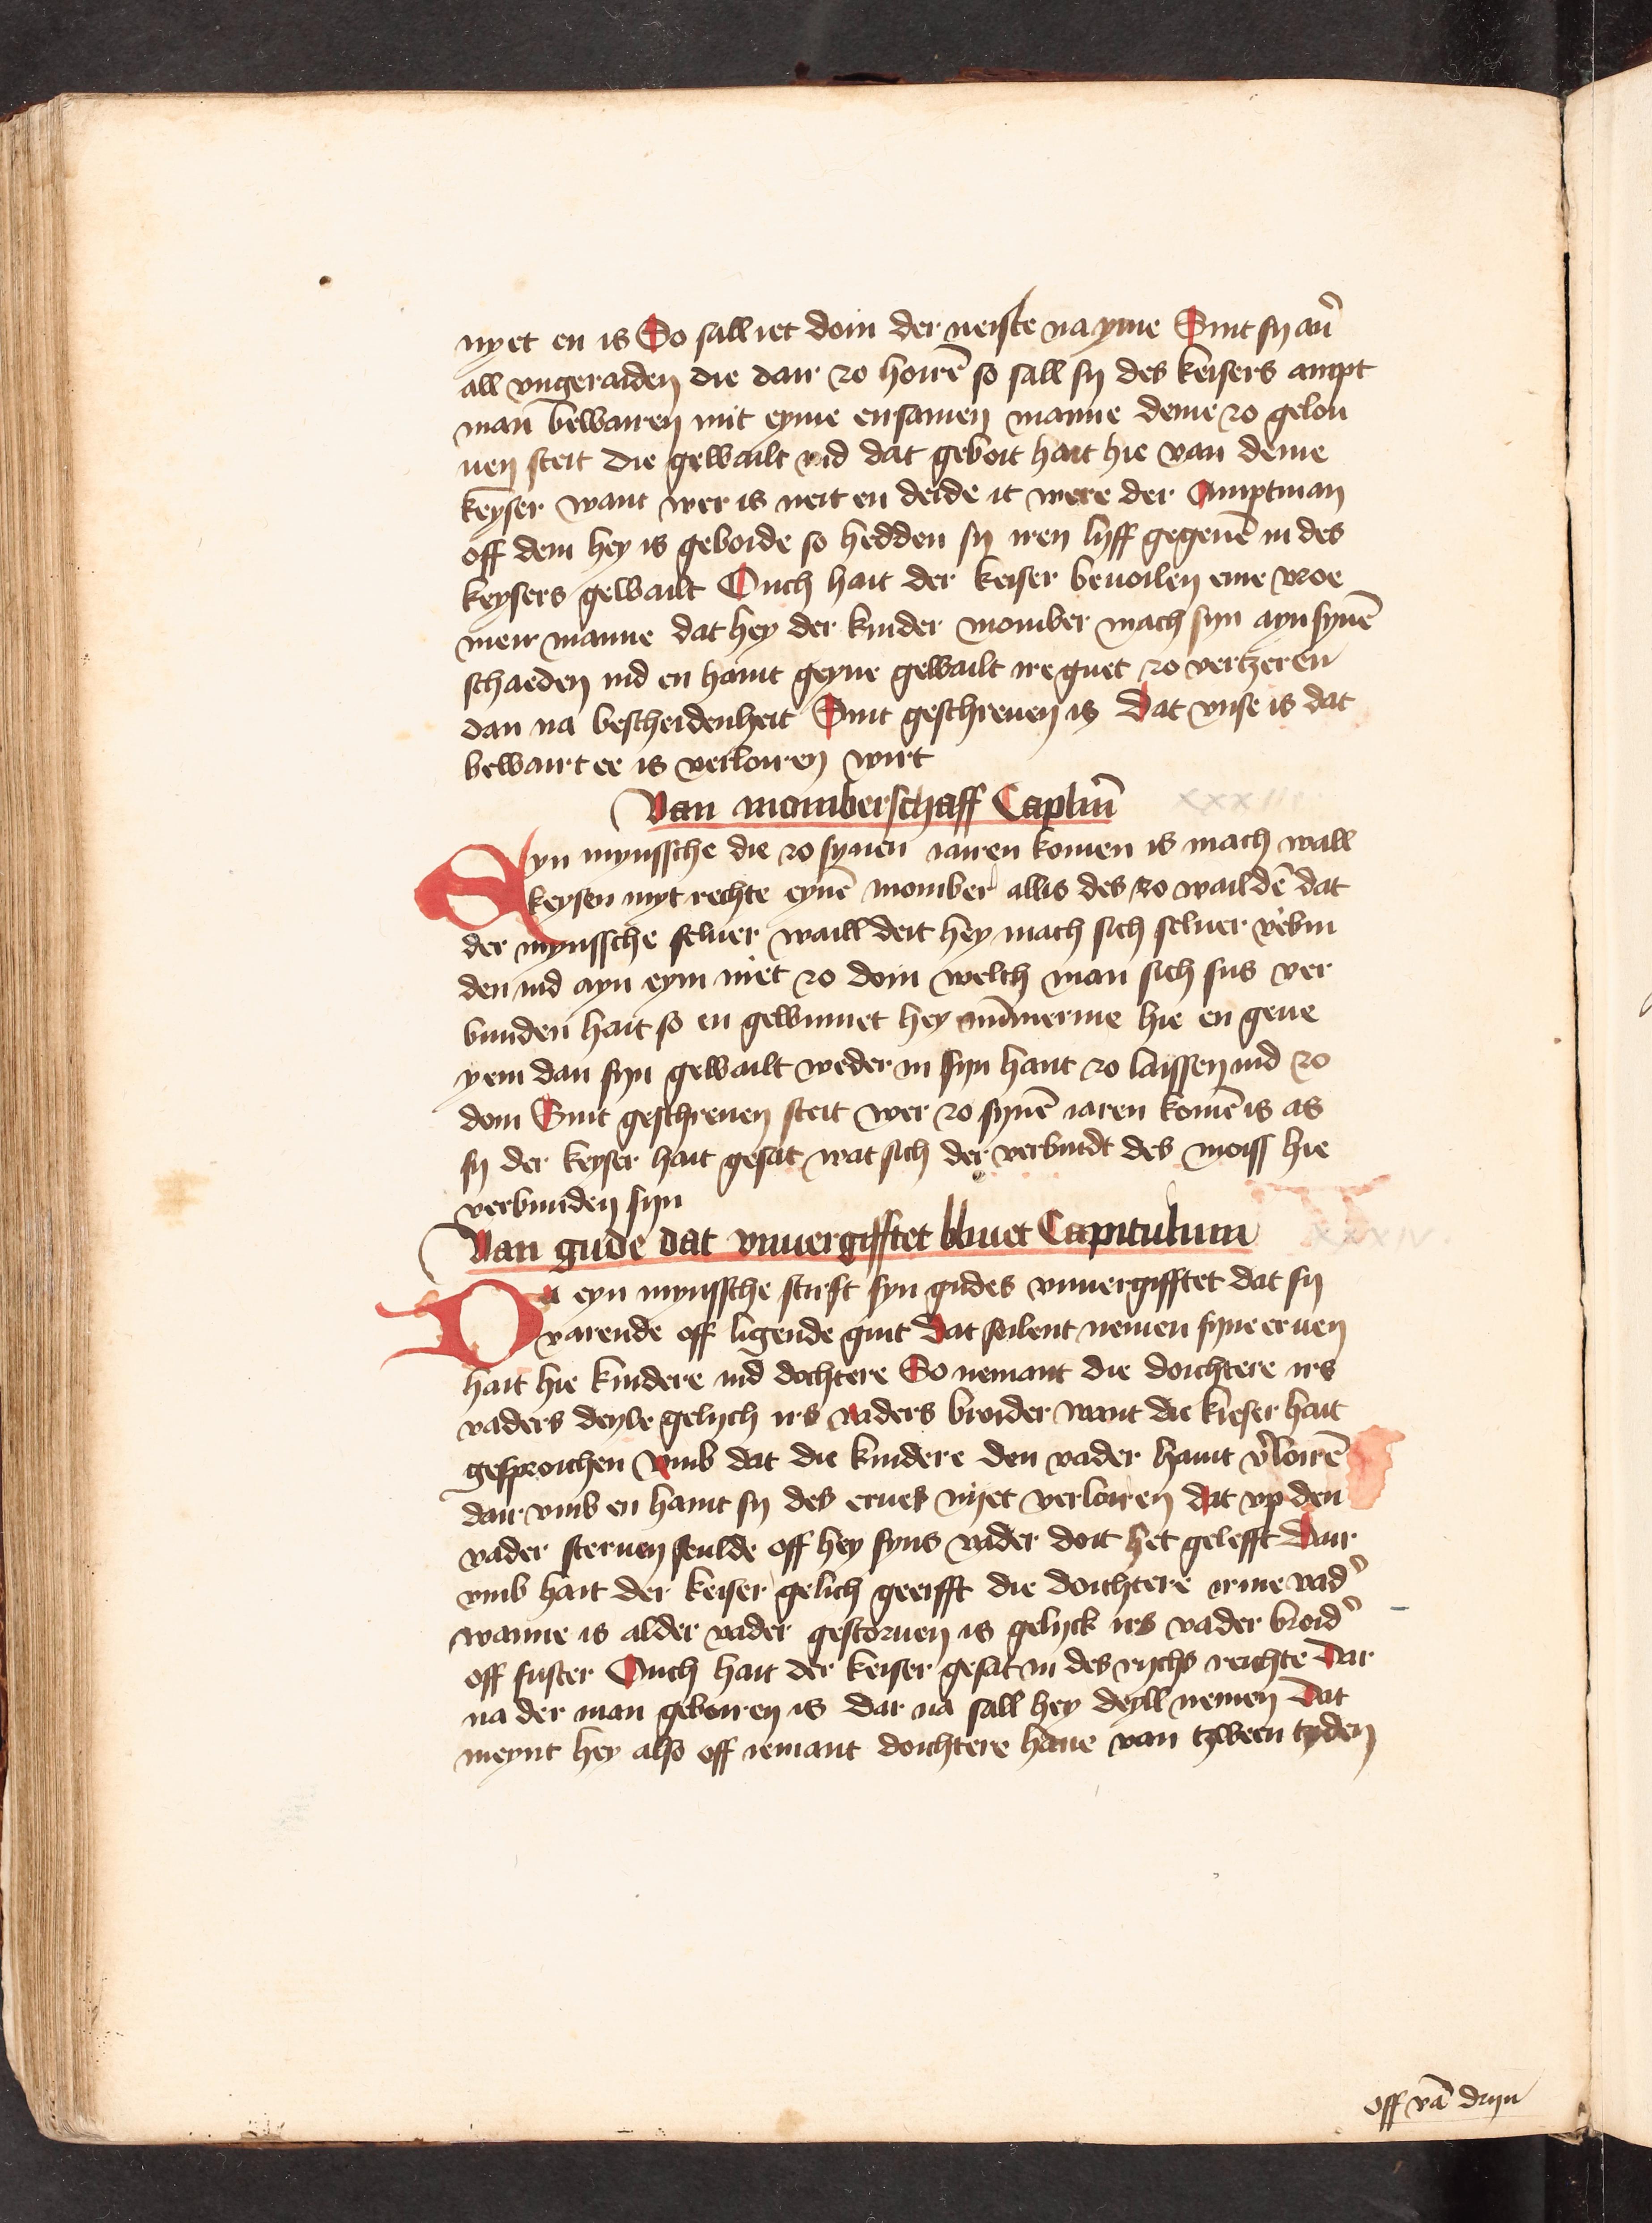 nyet en is So sall iet doin der neiste na yme Sint sy au̇
all vngeraiden die dair zo hoirē so sall sy des keisers ampt
man̄ bewairen mit eyme ersamen manne deme zo gelou
uen steit die gewailt ind dat geboit hait hie van deme
keyser want wer is neit en deide it were der Amptman
off dem hey is geboide so hedden sy iren lyff gegeuē in des
keysers gewailt Ouch hait der keiser beuoilen eme vroe
men manne dat hey der kinder momber mach syn ayn synē
schaeden ind en haint geyne gewailt ire guet zo vertzeren
dan na bescheidenheit Sint geschreuen is Dat vnse is dat
bewairt ee is verloiren wirt
Van momberschaff Captm̄
XXXIII
Eyn mynssche die zo synen iairen komen is mach wall
keysen myt rechte eynē momber allis des zo waildē dat
der mynssche seluer waill deit hey mach sich seluer v'bin
den ind ayn eym niet zo doin welch man sich sus ver
bunden hait so en gewinnet hey nūmerme hie en geue
yem dan syn gewailt weder in syn hant zo laissen ind zo
doin Sint geschreuen steit wer zo synē iaren komē is as
sy der keyser hait gesat wat sich der verbindt des moiss hie
verbunden syn
Van gude dat vnuergifftet bliuet Capitulum
XXXIV.
Da eyn mynssche stirft syn gudes vnuergifftet dat sy
varende off ligende guit Dat seilent nemen syne eruen
hait hie kindere ind dochtere So nemant die doichtere irs
vaders deyle gelych irs vaders broider want die kieser hait
gesproichen vmb dat die kindere den vader haint v'loirē
dair vmb en haint sy des erues nyet verloiren dat vp den
vader steruen seulde off hey syns vader doit het gelefft Dair
vmb hait der keiser gelich geerfft die doichtere irme vad'
wanne is alder vader gestoruen is gelyck irs vader broid'
off suster Ouch hait der keiser gesat in des rychs reichte Dar
na der man geboiren is dar na sall hey deyll nemen Dat
meynt hey also off iemant doichtere haue van tzween tyden
off vā dryn